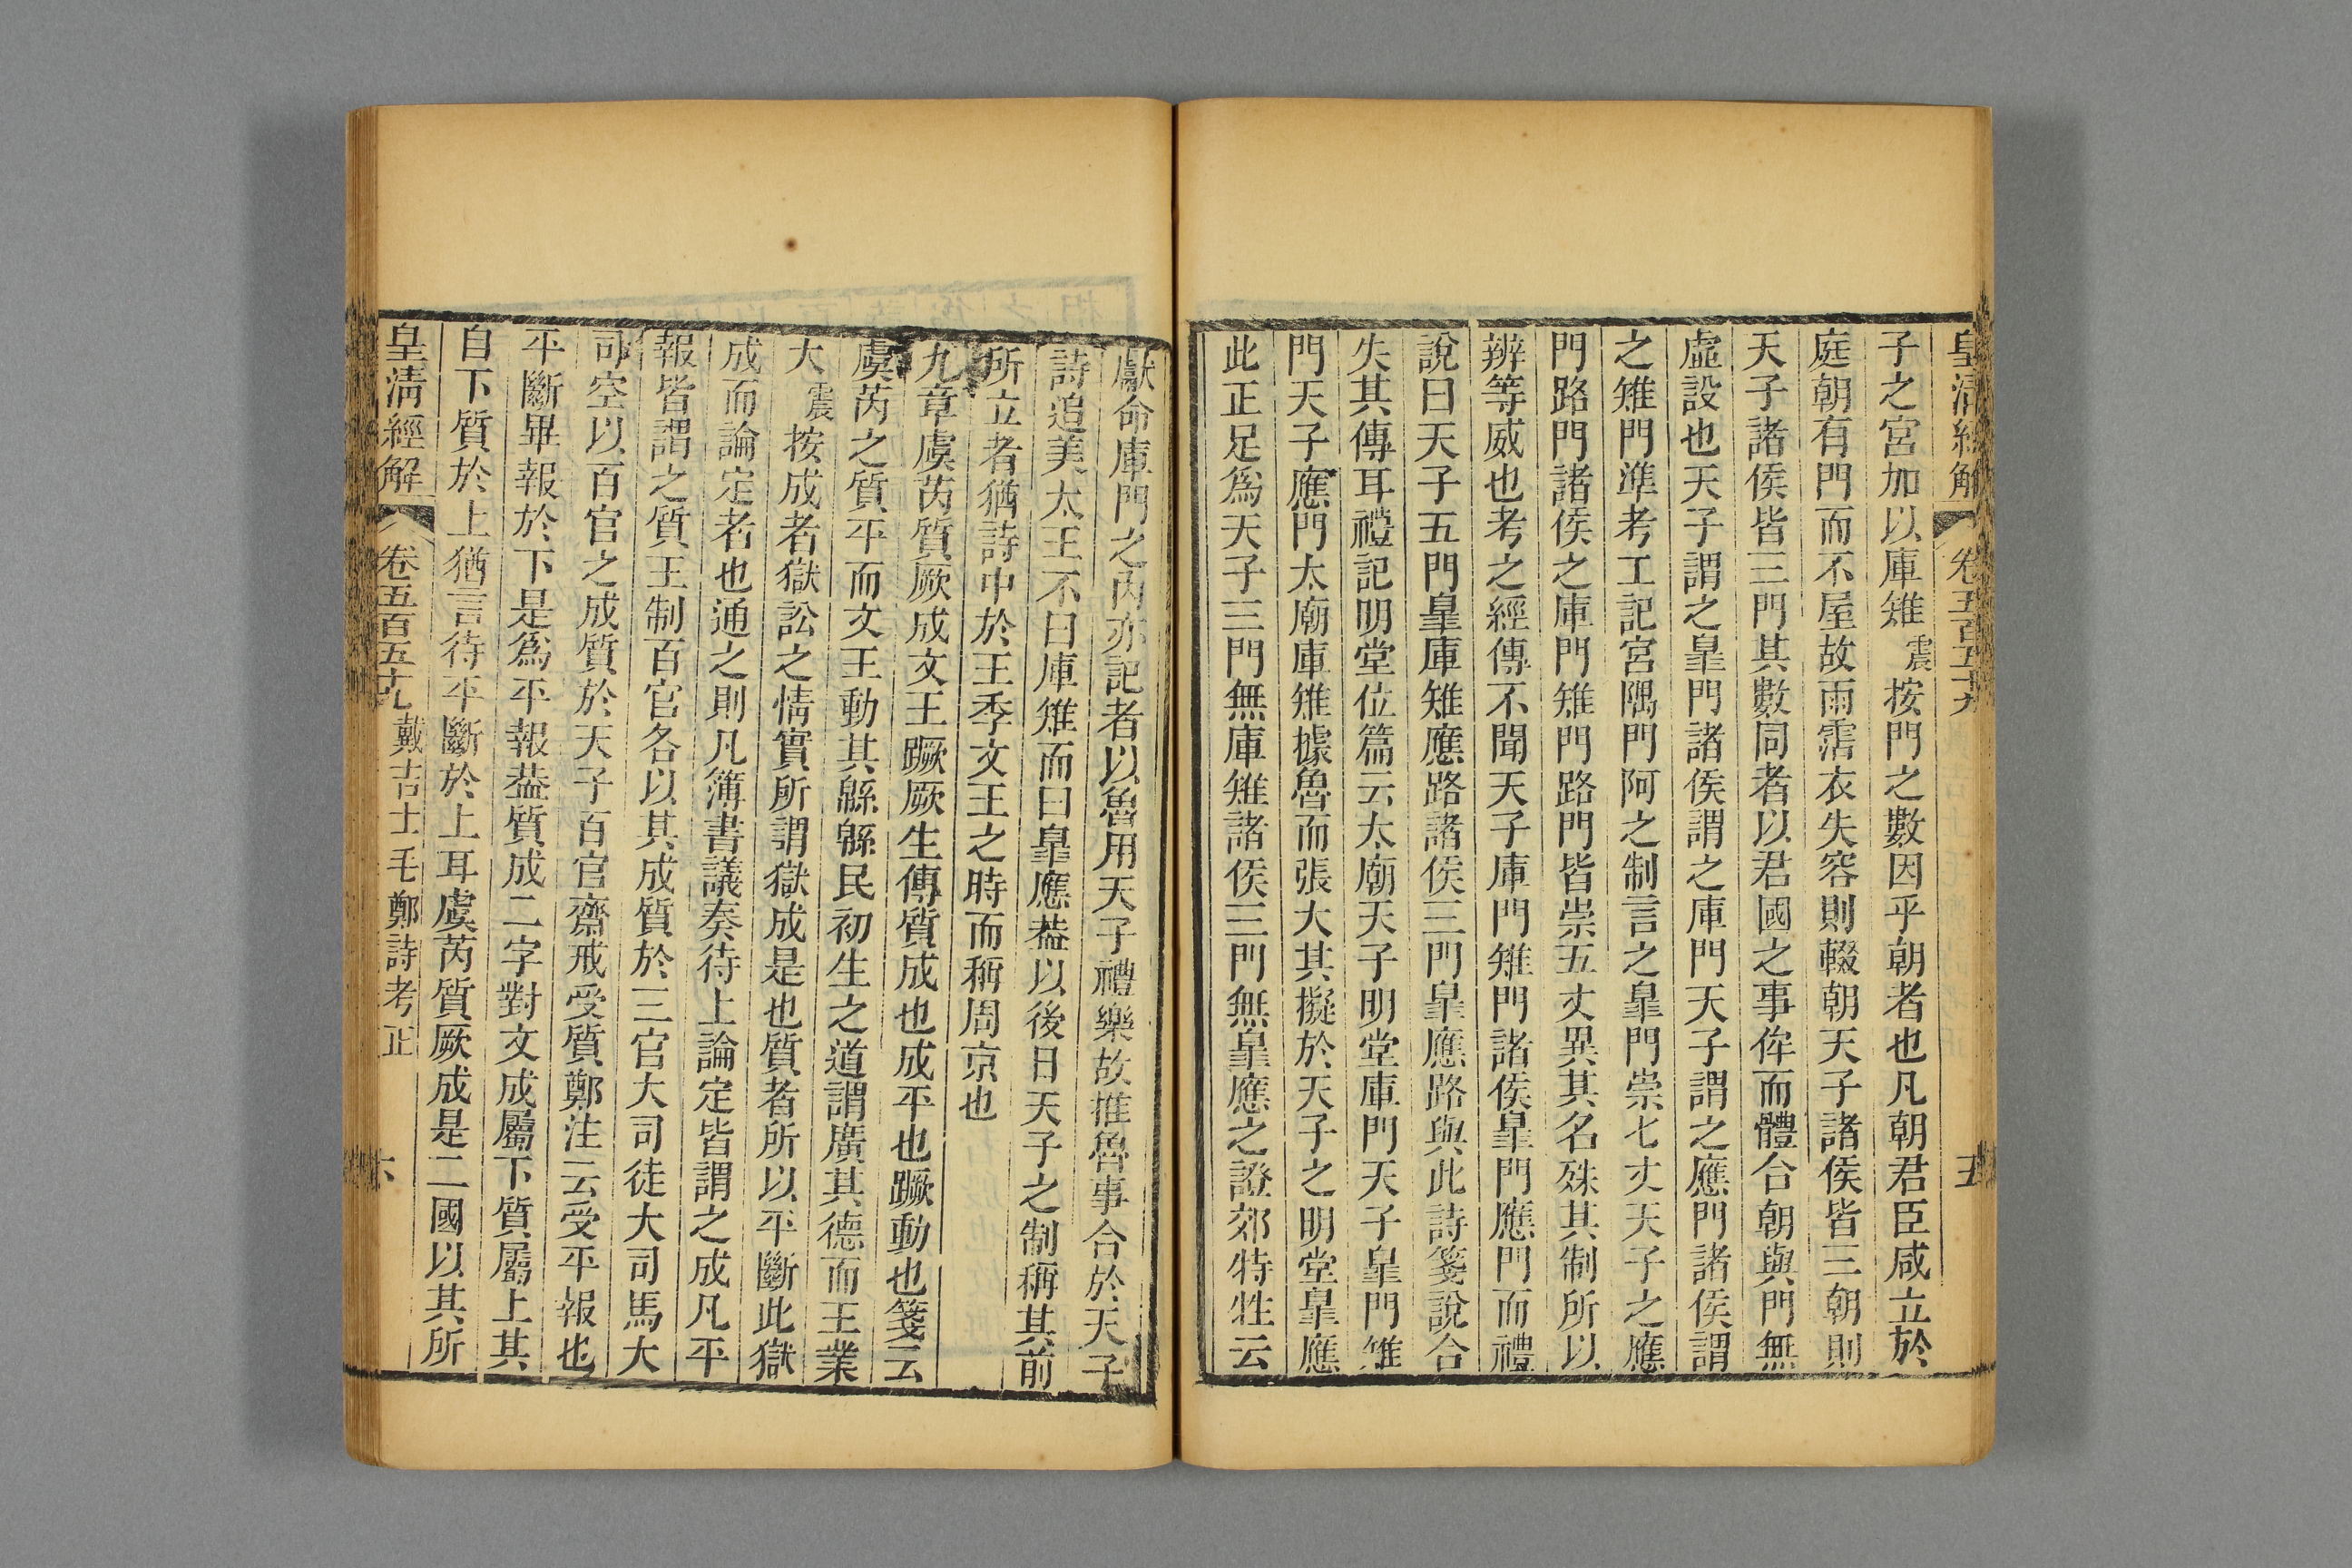 皇清經解 卷五百五十九 五
子之宮加以庫雉震按門之數因乎朝者也凡朝君臣咸立於
庭朝有門而不屋故雨霑衣失容則輟朝天子諸侯皆三朝則
天子諸侯皆三門其數同者以君國之事侔而體合朝與門無
虛設也天子謂之皐門諸侯謂之庫門天子謂之應門諸侯謂
之雉門準考工記宮隅門阿之制言之皐門崇七丈天子之應
門路門諸侯之庫門雉門路門皆崇五丈異其名殊其制所以
辨等威也考之經傳不聞天子庫門雉門諸侯皐門應門而禮
說曰天子五門皐庫雉應路諸侯三門皐應路與此詩箋說合
失其傳耳禮記明堂位篇云太廟天子明堂庫門天子皐門雉
門天子應門太廟庫雉據魯而張大其擬於天子之明堂皐應
此正足爲天子三門無庫雉諸侯三門無皐應之證郊特牲云
獻命庫門之內亦記者以魯用天子禮樂故推魯事合於天子
詩追美太王不曰庫雉而曰皐應葢以後日天子之制稱其前
所立者猶詩中於王季文王之時而稱周京也
九章虞芮質厥成文王蹶厥生傳質成也成平也蹶動也箋云
虞芮之質平而文王動其緜緜民初生之道謂廣其德而王業
大震按成者獄訟之情實所謂獄成是也質者所以平斷此獄
成而論定者也通之則凡簿書議奏待上論定皆謂之成凡平
報皆謂之質王制百官各以其成質於三官大司徒大司馬大
司空以百官之成質於天子百官齋戒受質鄭注云受平報也
平斷畢報於下是爲平報葢質成二字對文成屬下質屬上其
自下質於上猶言待平斷於上耳虞芮質厥成是二國以其所
皇清經解 卷五百五十九 戴吉士毛鄭詩考正 六